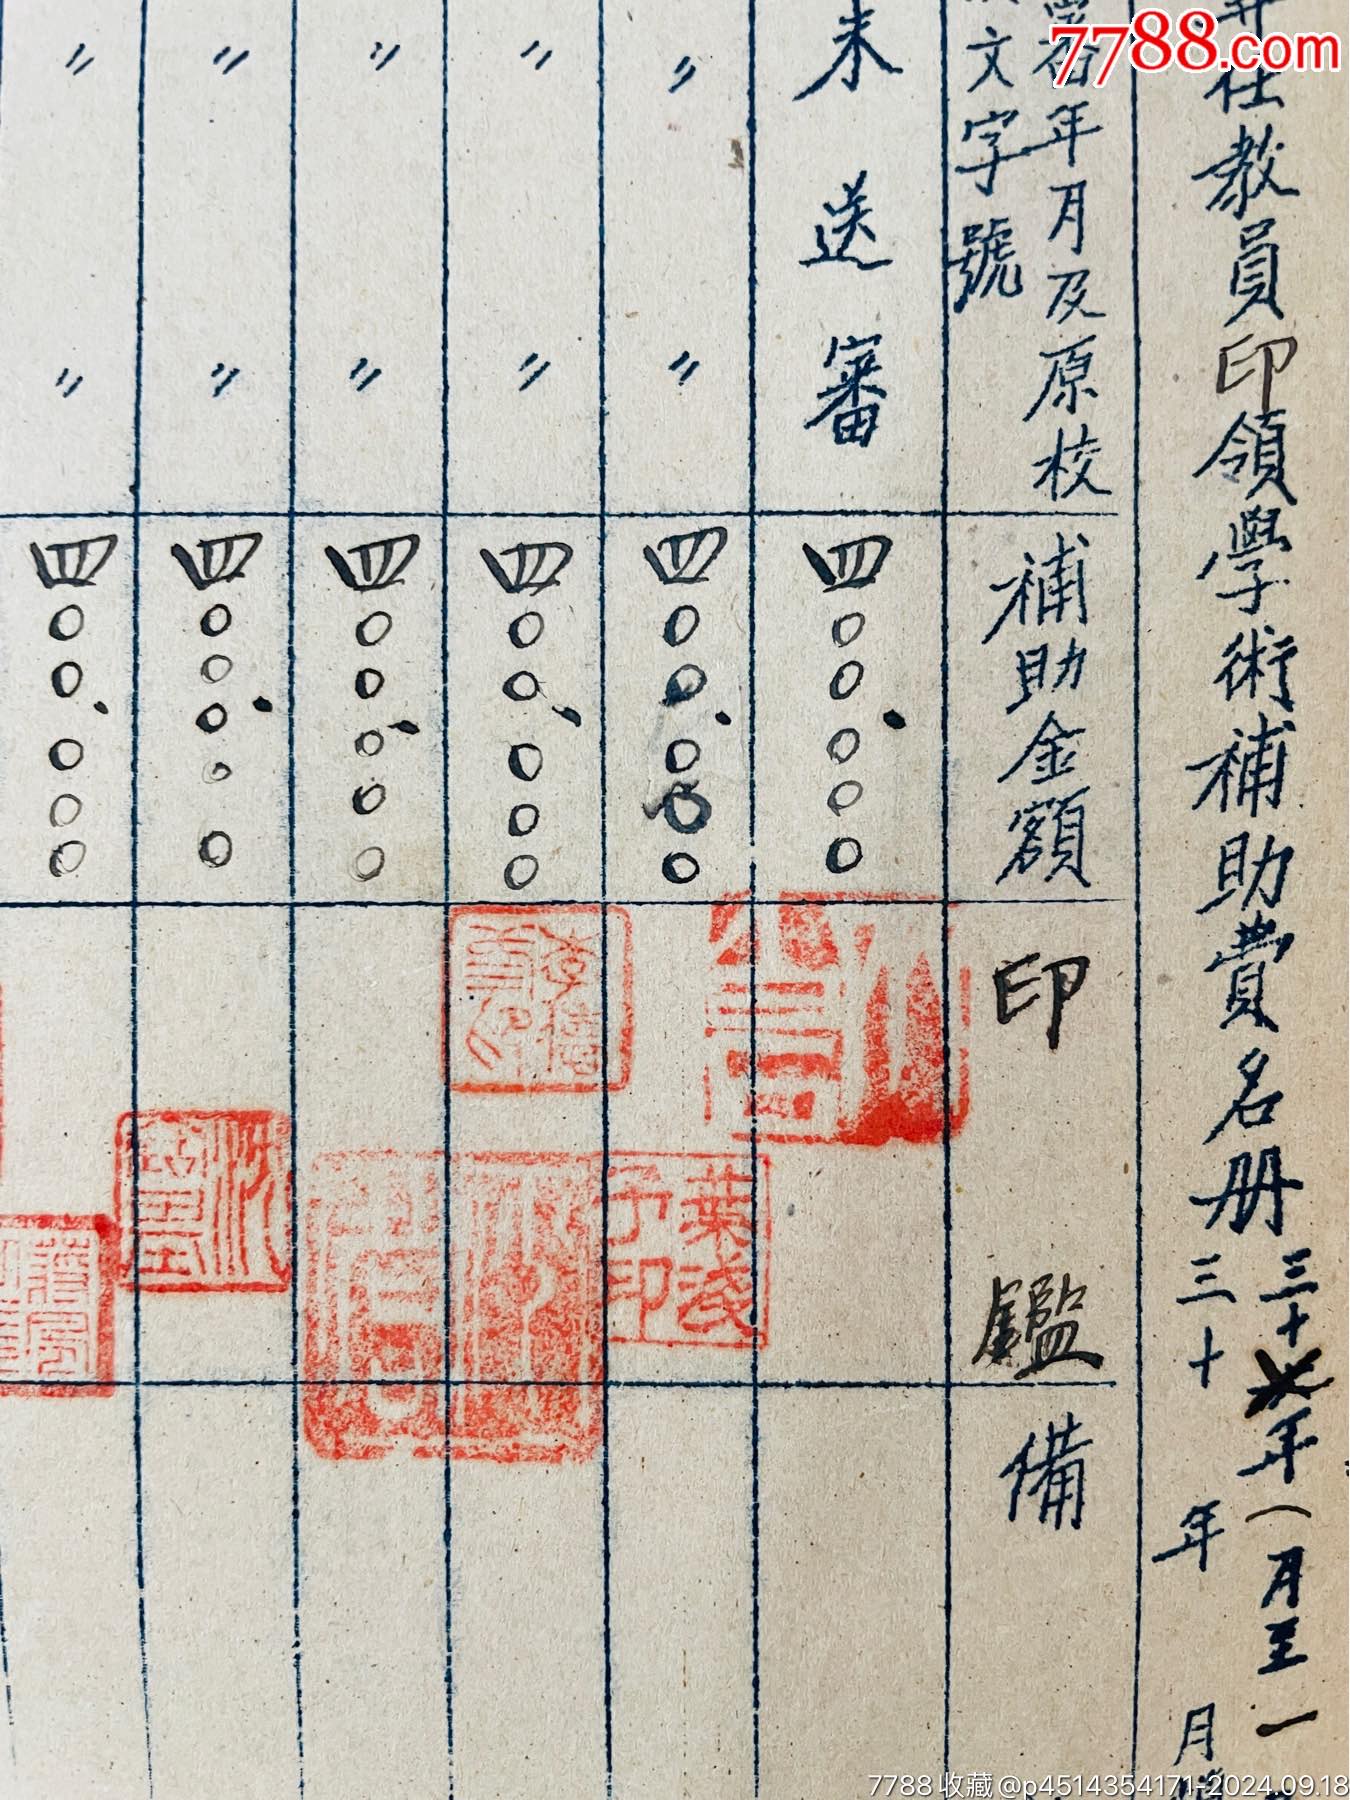 7788.com
任教員印領學術補助費名冊
三十
年(月至一
三十 年 月
年月及原校
文字號
補助金額
印鑑
備
未送審
四〇〇.〇〇〇
〃 〃
四〇〇.〇〇〇
葉淺予印
〃 〃
四〇〇.〇〇〇
〃 〃
四〇〇.〇〇〇
〃 〃
四〇〇.〇〇〇
〃 〃
四〇〇.〇〇〇
7788收藏@p4514354171-2024.09.18